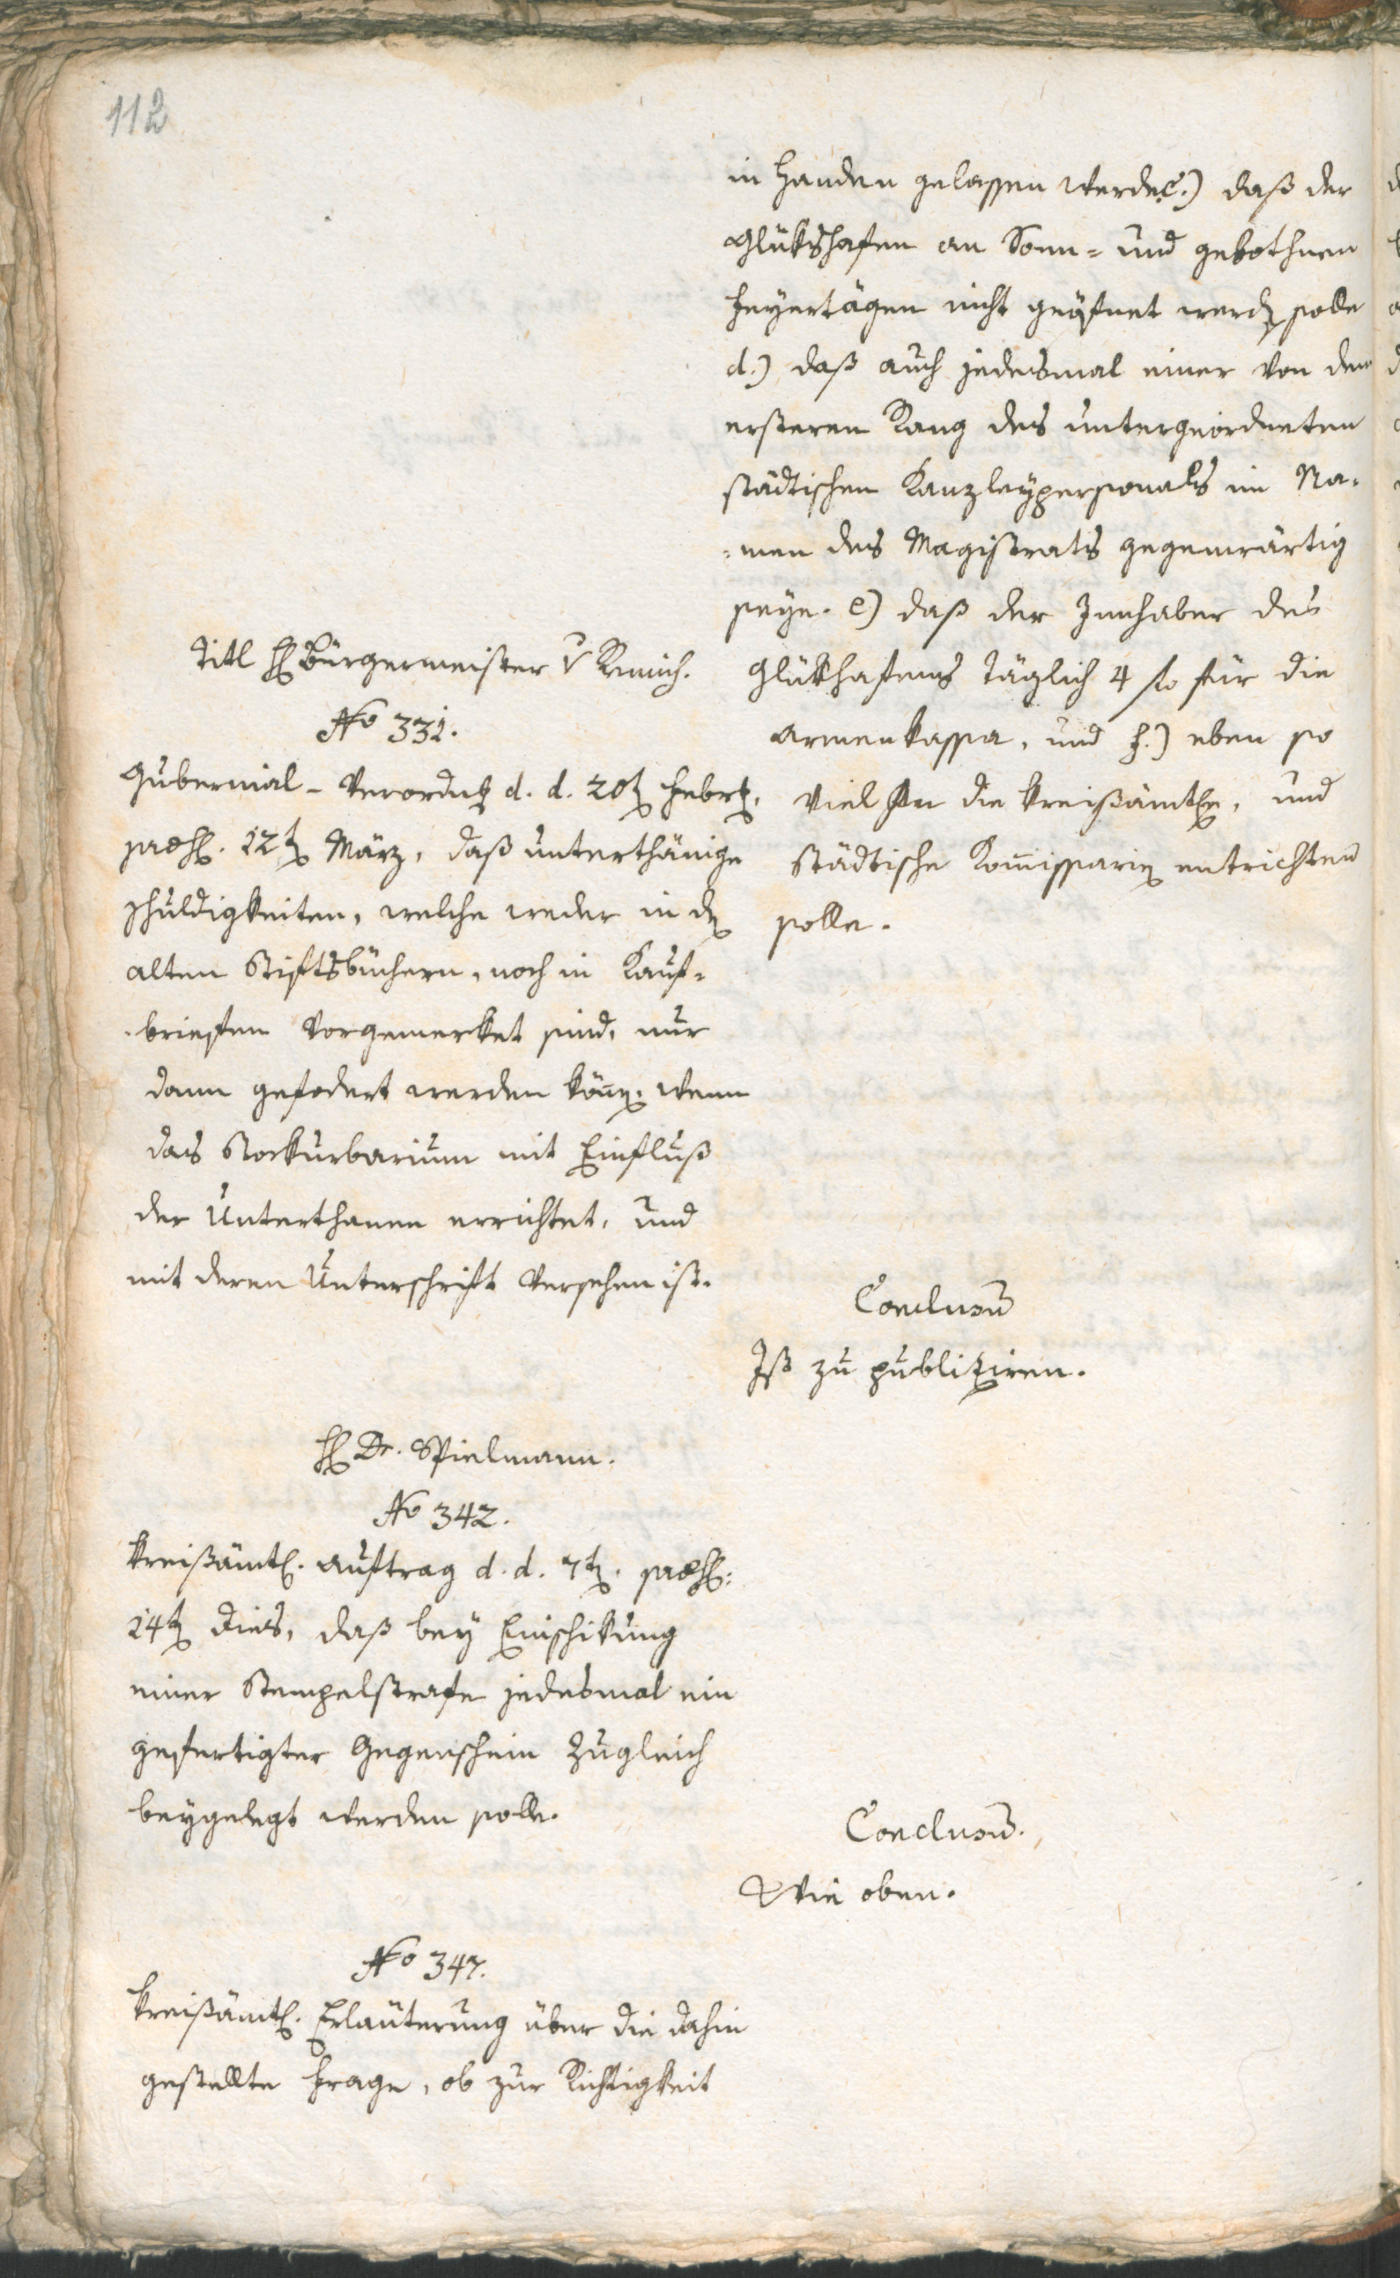 112
in Handen gelassen werde c.) daß der
Glükshafen an Sonn- und gebothnen
Feyertägen nicht geöfnet werdn solle
d.) daß auch jedesmal einer von dem
ersteren Rang des untergeordneten
städtischen Kanzleypersonals im Na-
-men des Magistrats gegenwärtig
seye. e) daß der Innhaber des
Glükhafens täglich 4 fl für die
Armenkassa, und f.) eben so
viel für die kreißämtle, und
städtische Kommissarin entrichten
solle.
Titl H Bürgermeister v Remich.
No 331.
Gubernial-Verordng d. d. 20t Febr,
præs. 12t März, daß unterthänige
Schuldigkeiten, welche weder in dn
alten Stiftsbüchern, noch in Kauf-
-briefen vorgemerket sind, nur
dann gefodert werden könn, wenn
das Stockurbarium mit Einfluß
der Unterthanen errichtet, und
mit deren Unterschrift versehen ist.
Conclusum
Ist zu publiziren.
H Dr. Spielmann.
No 342.
Kreißämtl. Auftrag d. d. 7t. præs:
14t dies, daß bey Einschikung
einer Stempelstrafe jedesmal ein
gefertigter Gegenschein zugleich
beygelegt werden solle.
Conclusum.
Wie oben.
No 347.
Kreißämtl. Erläuterung über die dahin
gestellte Frage, ob zur Richtigkeit